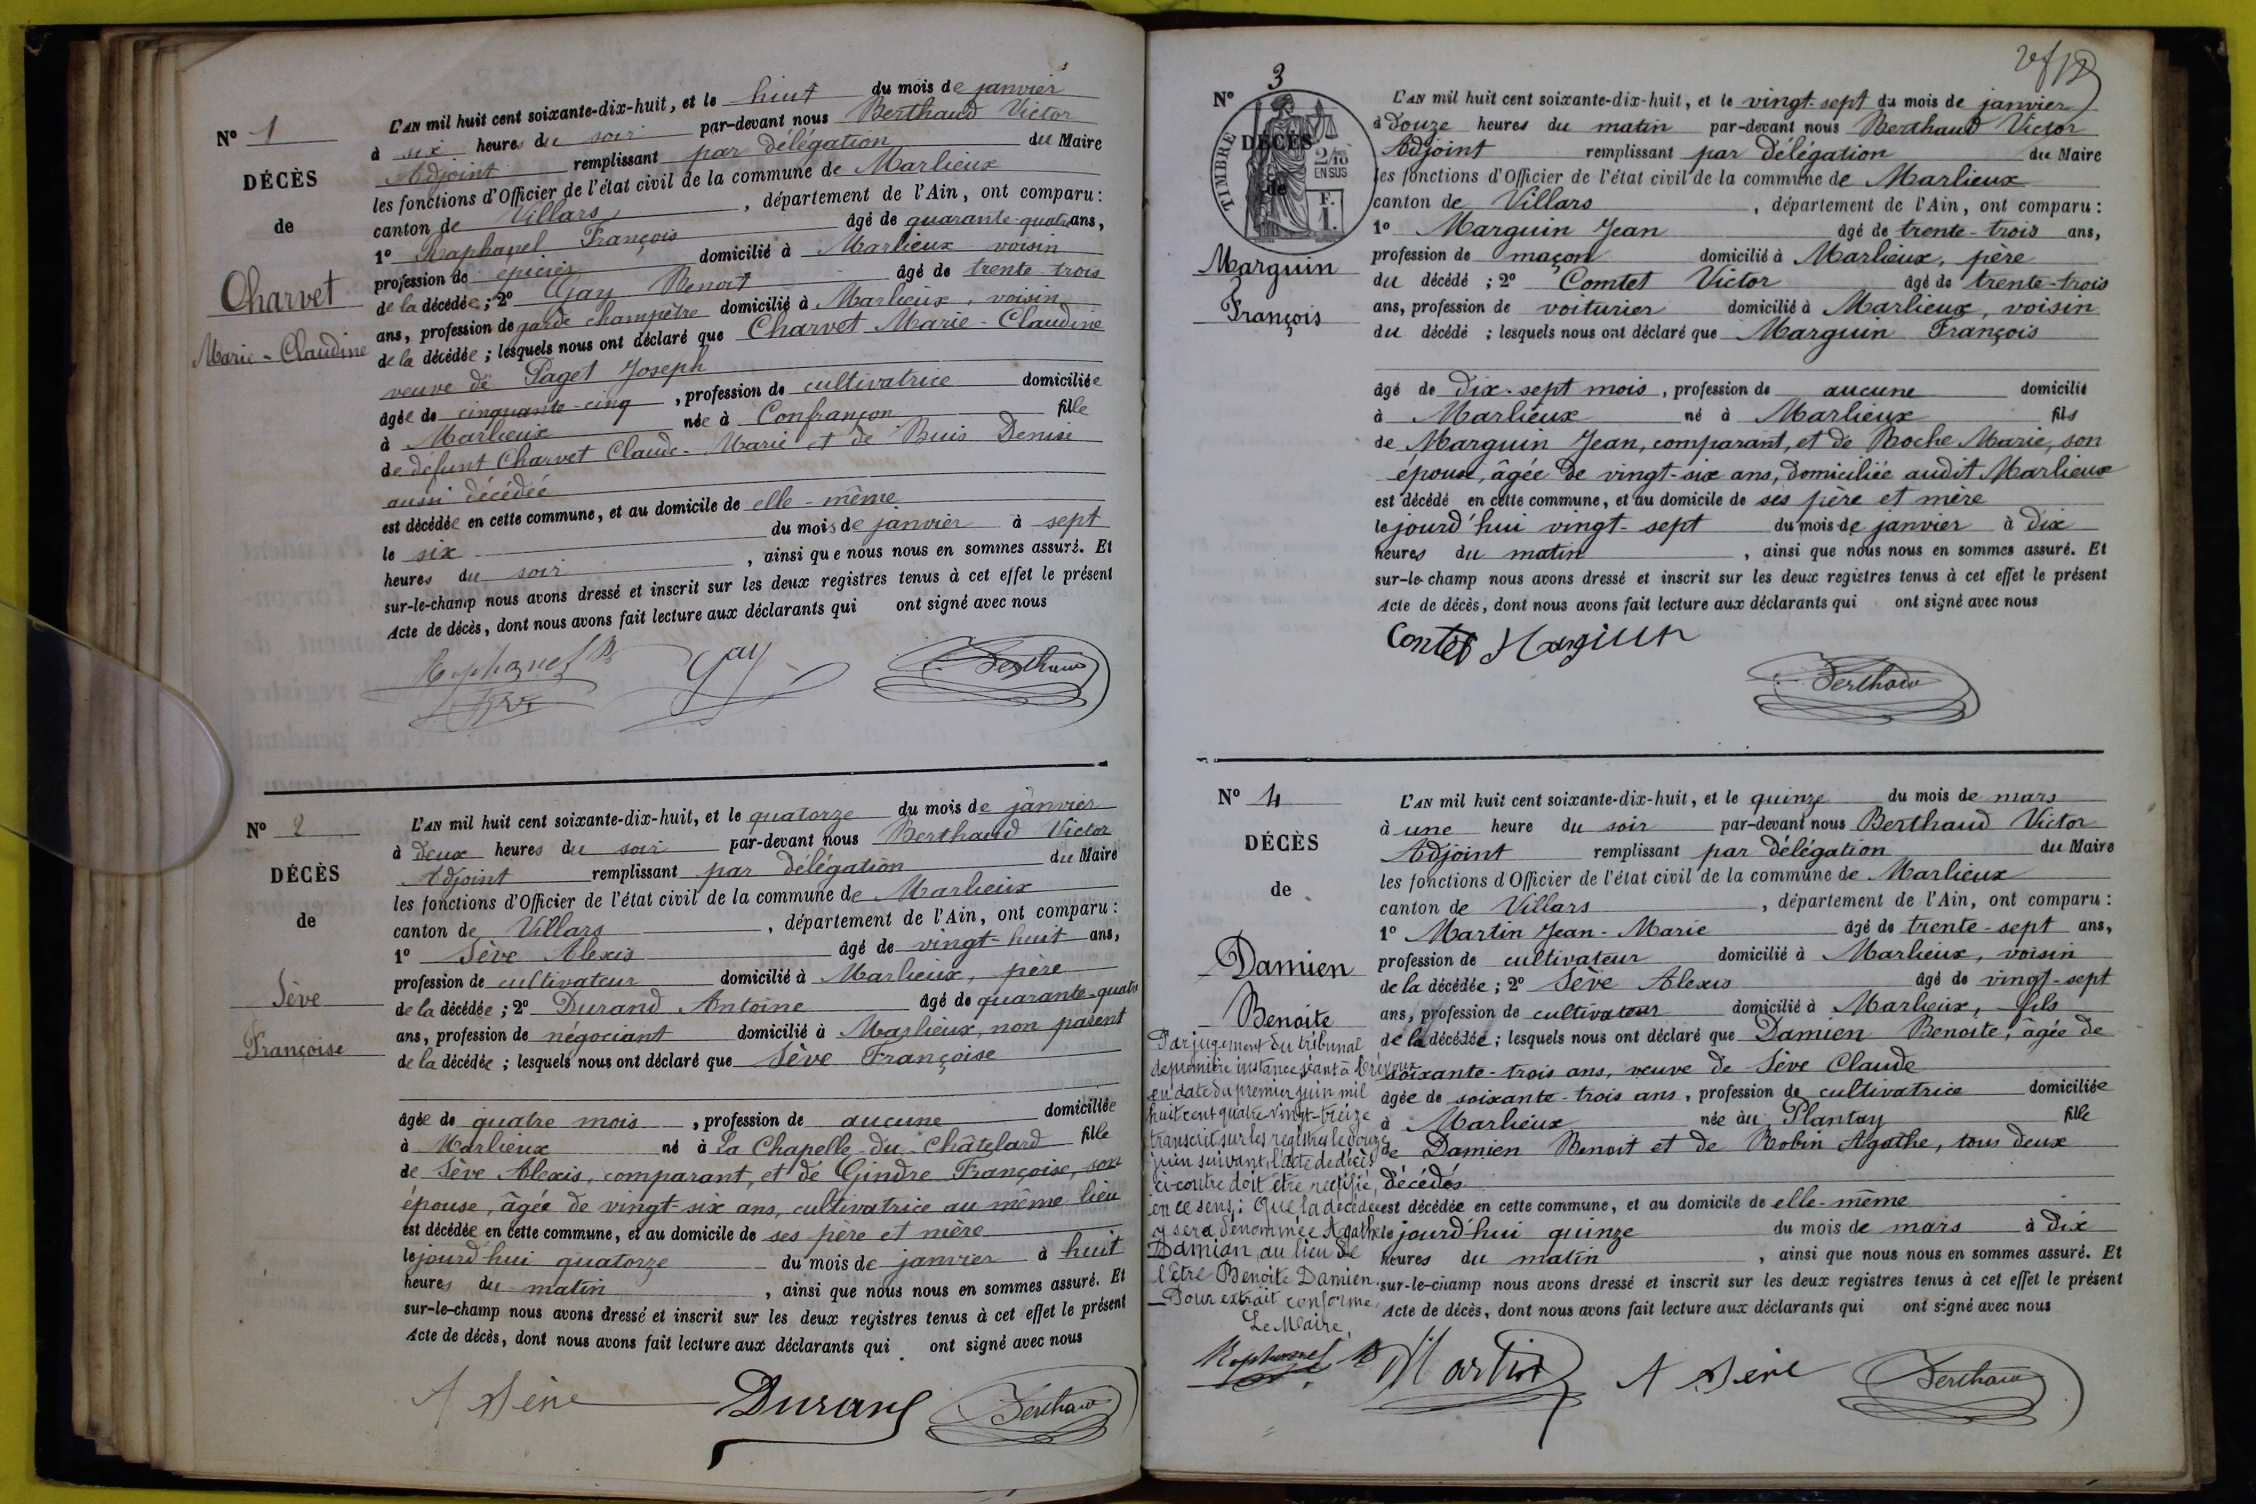 N° 1
DÉCÈS
de
Charvet
Marie-Claudine
L'AN mil huit cent soixante-dix-huit, et le huit du mois de janvier
à six heures du soir par-devant nous Berthaud Victor
Adjoint remplissant par délégation du Maire
les fonctions d'Officier de l'état civil de la commune de Marlieux
canton de Villars, département de l'Ain, ont comparu :
1° Raphanel François âgé de quarante-quatre ans,
profession de épicier domicilié à Marlieux voisin
de la décédée ; 2° Gay Benoit âgé de trente-trois
ans, profession de garde champêtre domicilié à Marlieux, voisin
de la décédée ; lesquels nous ont déclaré que Charvet Marie-Claudine
veuve de Paget Joseph
âgée de cinquante-cinq, profession de cultivatrice domiciliée
à Marlieux née à Confrançon fille
de défunt Charvet Claude-Marie et de Buis Denise
aussi décédée
est décédée en cette commune, et au domicile de elle-même
le six du mois de janvier à sept
heures du soir, ainsi que nous nous en sommes assuré. Et
sur-le-champ nous avons dressé et inscrit sur les deux registres tenus à cet effet le présent
Acte de décès, dont nous avons fait lecture aux déclarants qui ont signé avec nous
Raphanel Gay Berthaud
N° 2
DÉCÈS
de
Sève
Françoise
L'AN mil huit cent soixante-dix-huit, et le quatorze du mois de janvier
à deux heures du soir par-devant nous Berthaud Victor
Adjoint remplissant par délégation du Maire
les fonctions d'Officier de l'état civil de la commune de Marlieux
canton de Villars, département de l'Ain, ont comparu :
1° Sève Alexis âgé de vingt-huit ans,
profession de cultivateur domicilié à Marlieux, père
de la décédée ; 2° Durand Antoine âgé de quarante-quatre
ans, profession de négociant domicilié à Marlieux, non parent
de la décédée ; lesquels nous ont déclaré que Sève Françoise
âgée de quatre mois, profession de aucune domiciliée
à Marlieux né à La Chapelle-du-Châtelard fille
de Sève Alexis, comparant, et de Gindre Françoise, son
épouse, âgée de vingt-six ans, cultivatrice au même lieu
est décédée en cette commune, et au domicile de ses père et mère
le jourd'hui quatorze du mois de janvier à huit
heures du matin, ainsi que nous nous en sommes assuré. Et
sur-le-champ nous avons dressé et inscrit sur les deux registres tenus à cet effet le présent
Acte de décès, dont nous avons fait lecture aux déclarants qui ont signé avec nous
A Sève Durand Berthaud
N° 3
TIMBRE
2/10 EN SUS
F. 1.
DÉCÈS
de
Marguin
François
L'AN mil huit cent soixante-dix-huit, et le vingt-sept du mois de janvier
à douze heures du matin par-devant nous Berthaud Victor
Adjoint remplissant par délégation du Maire
les fonctions d'Officier de l'état civil de la commune de Marlieux
canton de Villars, département de l'Ain, ont comparu :
1° Marguin Jean âgé de trente-trois ans,
profession de maçon domicilié à Marlieux, père
du décédé ; 2° Comtet Victor âgé de trente-trois
ans, profession de voiturier domicilié à Marlieux, voisin
du décédé ; lesquels nous ont déclaré que Marguin François
âgé de dix-sept mois, profession de aucune domicilié
à Marlieux né à Marlieux fils
de Marguin Jean, comparant, et de Roche Marie, son
épouse, âgée de vingt-six ans, domiciliée audit Marlieux
est décédé en cette commune, et au domicile de ses père et mère
le jourd'hui vingt-sept du mois de janvier à dix
heures du matin, ainsi que nous nous en sommes assuré. Et
sur-le-champ nous avons dressé et inscrit sur les deux registres tenus à cet effet le présent
Acte de décès, dont nous avons fait lecture aux déclarants qui ont signé avec nous
Contet Marguin
Berthaud
N° 4
DÉCÈS
de
Damien
Benoite
Par jugement du tribunal
de première instance séant à Trévoux
en date du premier juin mil
huit cent quatre-vingt-treize
transcrit sur les registres le douze
juin suivant, l'acte de décès
ci-contre doit être rectifié,
en ce sens : Que la décédée
y sera dénommée Agathe
Damian au lieu de
l'être Benoite Damien.
Pour extrait conforme,
Le Maire,
Raphanel
L'AN mil huit cent soixante-dix-huit, et le quinze du mois de mars
à une heure du soir par-devant nous Berthaud Victor
Adjoint remplissant par délégation du Maire
les fonctions d'Officier de l'état civil de la commune de Marlieux
canton de Villars, département de l'Ain, ont comparu :
1° Martin Jean-Marie âgé de trente-sept ans,
profession de cultivateur domicilié à Marlieux, voisin
de la décédée ; 2° Sève Alexis âgé de vingt-sept
ans, profession de cultivateur domicilié à Marlieux, fils
de la décédée ; lesquels nous ont déclaré que Damien Benoite, âgée de
soixante-trois ans, veuve de Sève Claude
âgée de soixante-trois ans, profession de cultivatrice domiciliée
à Marlieux née au Plantay fille
de Damien Benoit et de Robin Agathe, tous deux
décédés
est décédée en cette commune, et au domicile de elle-même
le jourd'hui quinze du mois de mars à dix
heures du matin, ainsi que nous nous en sommes assuré. Et
sur-le-champ nous avons dressé et inscrit sur les deux registres tenus à cet effet le présent
Acte de décès, dont nous avons fait lecture aux déclarants qui ont signé avec nous
Martin A Sève Berthaud